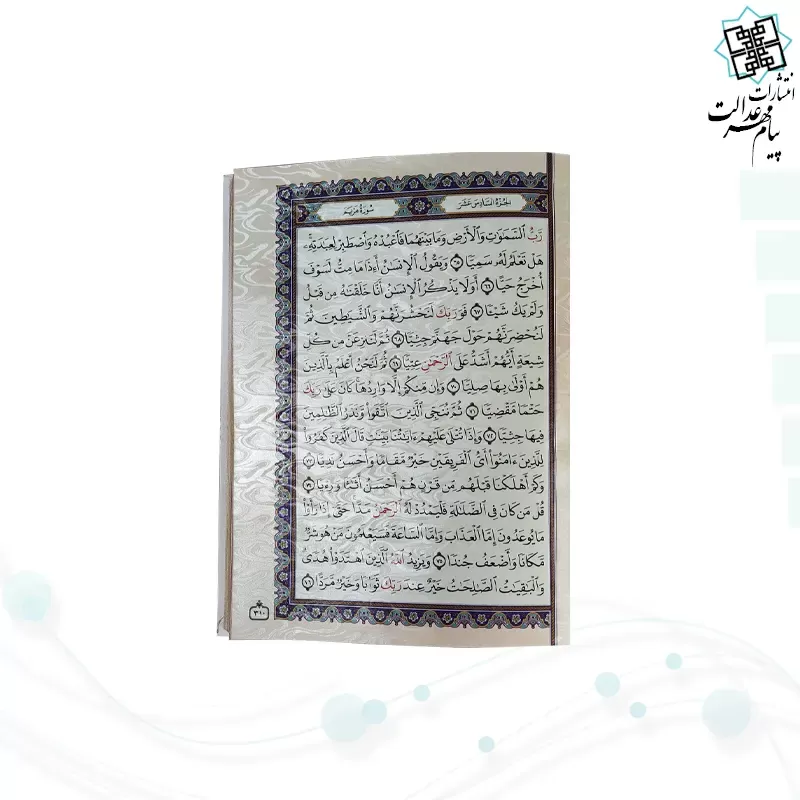 انتشارات
پیام مهر عدالت
الجزء السادس عشر
سورة مريم
رَبُّ السَّمَٰوَٰتِ وَالْأَرْضِ وَمَا بَيْنَهُمَا فَاعْبُدْهُ وَاصْطَبِرْ لِعِبَٰدَتِهِۦ
هَلْ تَعْلَمُ لَهُۥ سَمِيًّا ٦٥ وَيَقُولُ الْإِنسَٰنُ أَءِذَا مَا مِتُّ لَسَوْفَ
أُخْرَجُ حَيًّا ٦٦ أَوَلَا يَذْكُرُ الْإِنسَٰنُ أَنَّا خَلَقْنَٰهُ مِن قَبْلُ
وَلَمْ يَكُ شَيْـًٔا ٦٧ فَوَرَبِّكَ لَنَحْشُرَنَّهُمْ وَالشَّيَٰطِينَ ثُمَّ
لَنُحْضِرَنَّهُمْ حَوْلَ جَهَنَّمَ جِثِيًّا ٦٨ ثُمَّ لَنَنزِعَنَّ مِن كُلِّ
شِيعَةٍ أَيُّهُمْ أَشَدُّ عَلَى الرَّحْمَٰنِ عِتِيًّا ٦٩ ثُمَّ لَنَحْنُ أَعْلَمُ بِالَّذِينَ
هُمْ أَوْلَىٰ بِهَا صِلِيًّا ٧٠ وَإِن مِّنكُمْ إِلَّا وَارِدُهَا كَانَ عَلَىٰ رَبِّكَ
حَتْمًا مَّقْضِيًّا ٧١ ثُمَّ نُنَجِّى الَّذِينَ اتَّقَوا وَّنَذَرُ الظَّٰلِمِينَ
فِيهَا جِثِيًّا ٧٢ وَإِذَا تُتْلَىٰ عَلَيْهِمْ ءَايَٰتُنَا بَيِّنَٰتٍ قَالَ الَّذِينَ كَفَرُوا
لِلَّذِينَ ءَامَنُوا أَىُّ الْفَرِيقَيْنِ خَيْرٌ مَّقَامًا وَأَحْسَنُ نَدِيًّا ٧٣
وَكَمْ أَهْلَكْنَا قَبْلَهُم مِّن قَرْنٍ هُمْ أَحْسَنُ أَثَٰثًا وَرِءْيًا ٧٤
قُلْ مَن كَانَ فِى الضَّلَٰلَةِ فَلْيَمْدُدْ لَهُ الرَّحْمَٰنُ مَدًّا حَتَّىٰ إِذَا رَأَوْا
مَا يُوعَدُونَ إِمَّا الْعَذَابَ وَإِمَّا السَّاعَةَ فَسَيَعْلَمُونَ مَنْ هُوَ شَرٌّ
مَّكَانًا وَأَضْعَفُ جُندًا ٧٥ وَيَزِيدُ اللَّهُ الَّذِينَ اهْتَدَوْا هُدًى
وَالْبَٰقِيَٰتُ الصَّٰلِحَٰتُ خَيْرٌ عِندَ رَبِّكَ ثَوَابًا وَخَيْرٌ مَّرَدًّا ٧٦
٣١٠